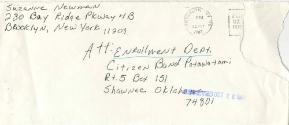 Suzanne Newman
230 Bay Ridge Pkway #B
Brooklyn, New York
11209
PM
Att: Enrollment Dept.
Citizen Band Potawatami
Rt. 5 Box 151
Shawnee Oklahoma
74801